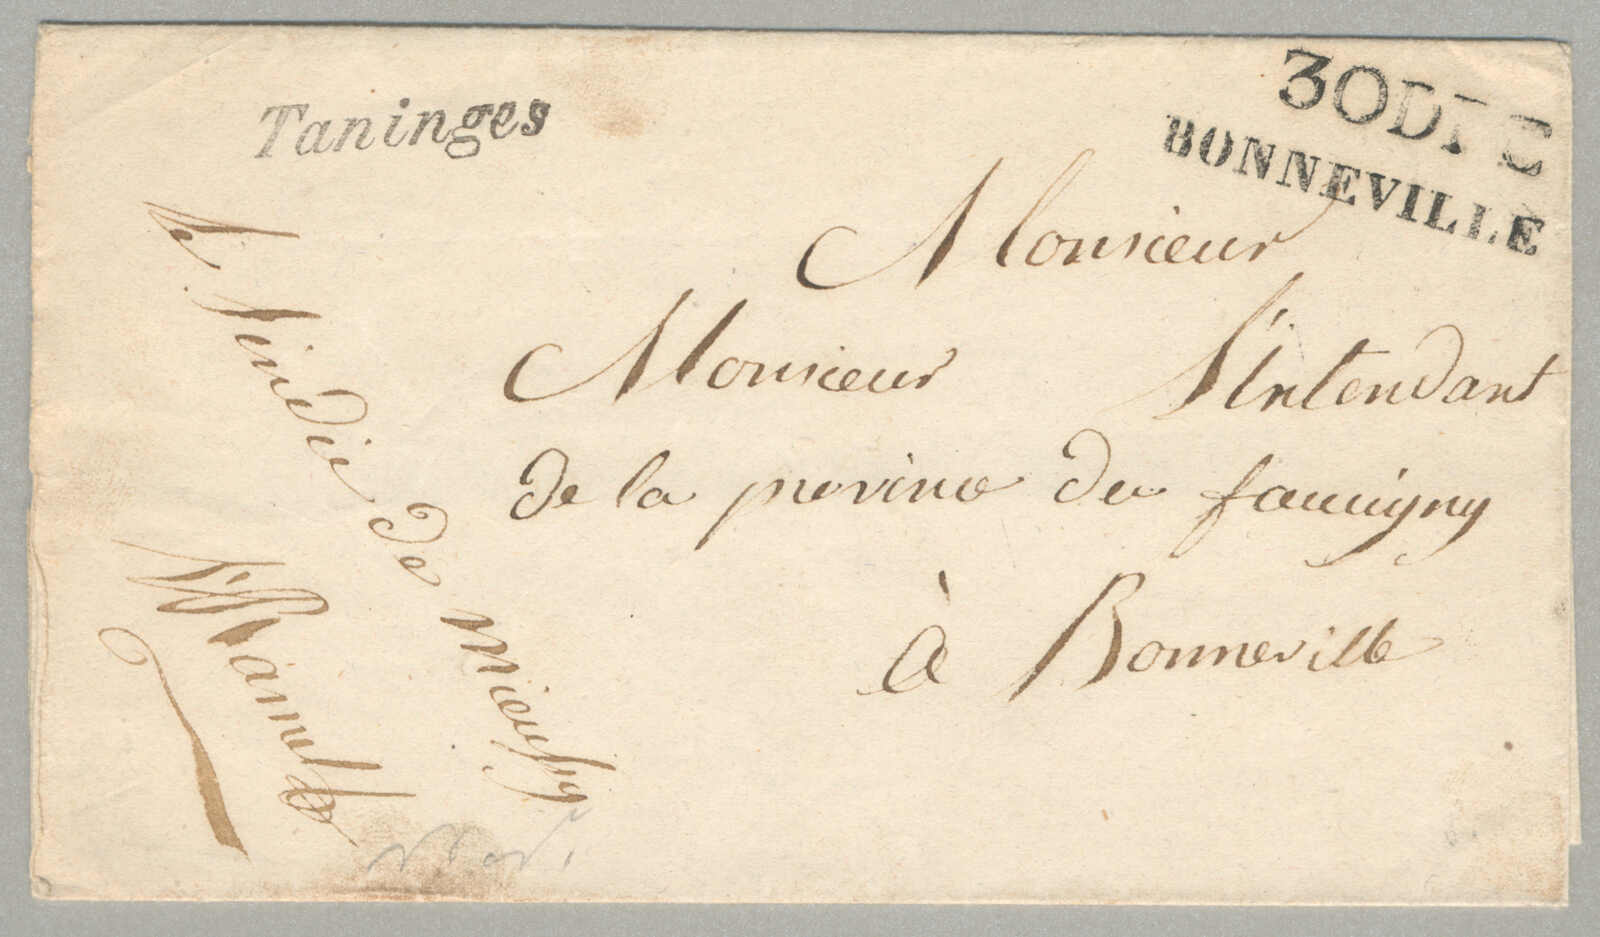 Taninges
30DEC
BONNEVILLE
Monsieur
Monsieur l'intendant
de la province du faucigny
à Bonneville
le sindic
de mieussy